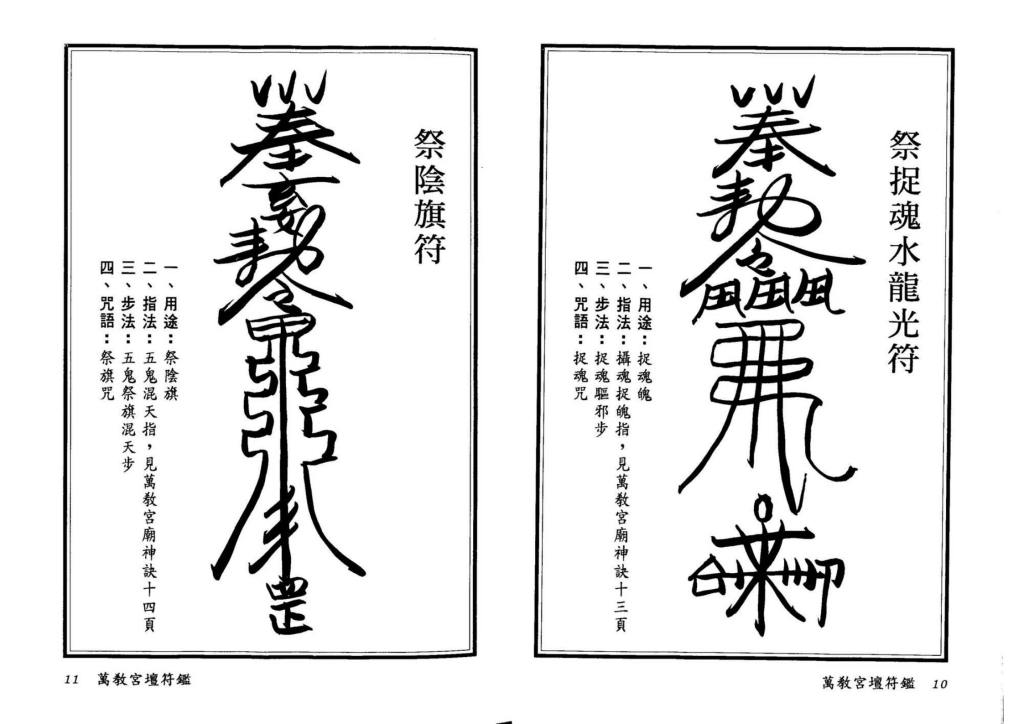 祭捉魂水龍光符
一、用途：捉魂魄
二、指法：攝魂捉魄指，見萬教宮廟神訣十三頁
三、步法：捉魂驅邪步
四、咒語：捉魂咒
奉
勅令
萬教宮壇符鑑 10
祭陰旗符
一、用途：祭陰旗
二、指法：五鬼混天指，見萬教宮廟神訣十四頁
三、步法：五鬼祭旗混天步
四、咒語：祭旗咒
奉
玄女
勅令
罡
11 萬教宮壇符鑑